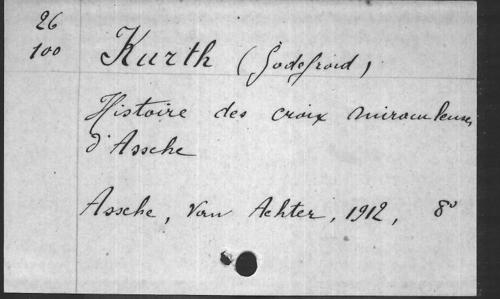 26
100
Kurth (Godefroid)
Histoire des croix miraculeuses
d'Assche
Assche, Van Achter, 1912, 8°